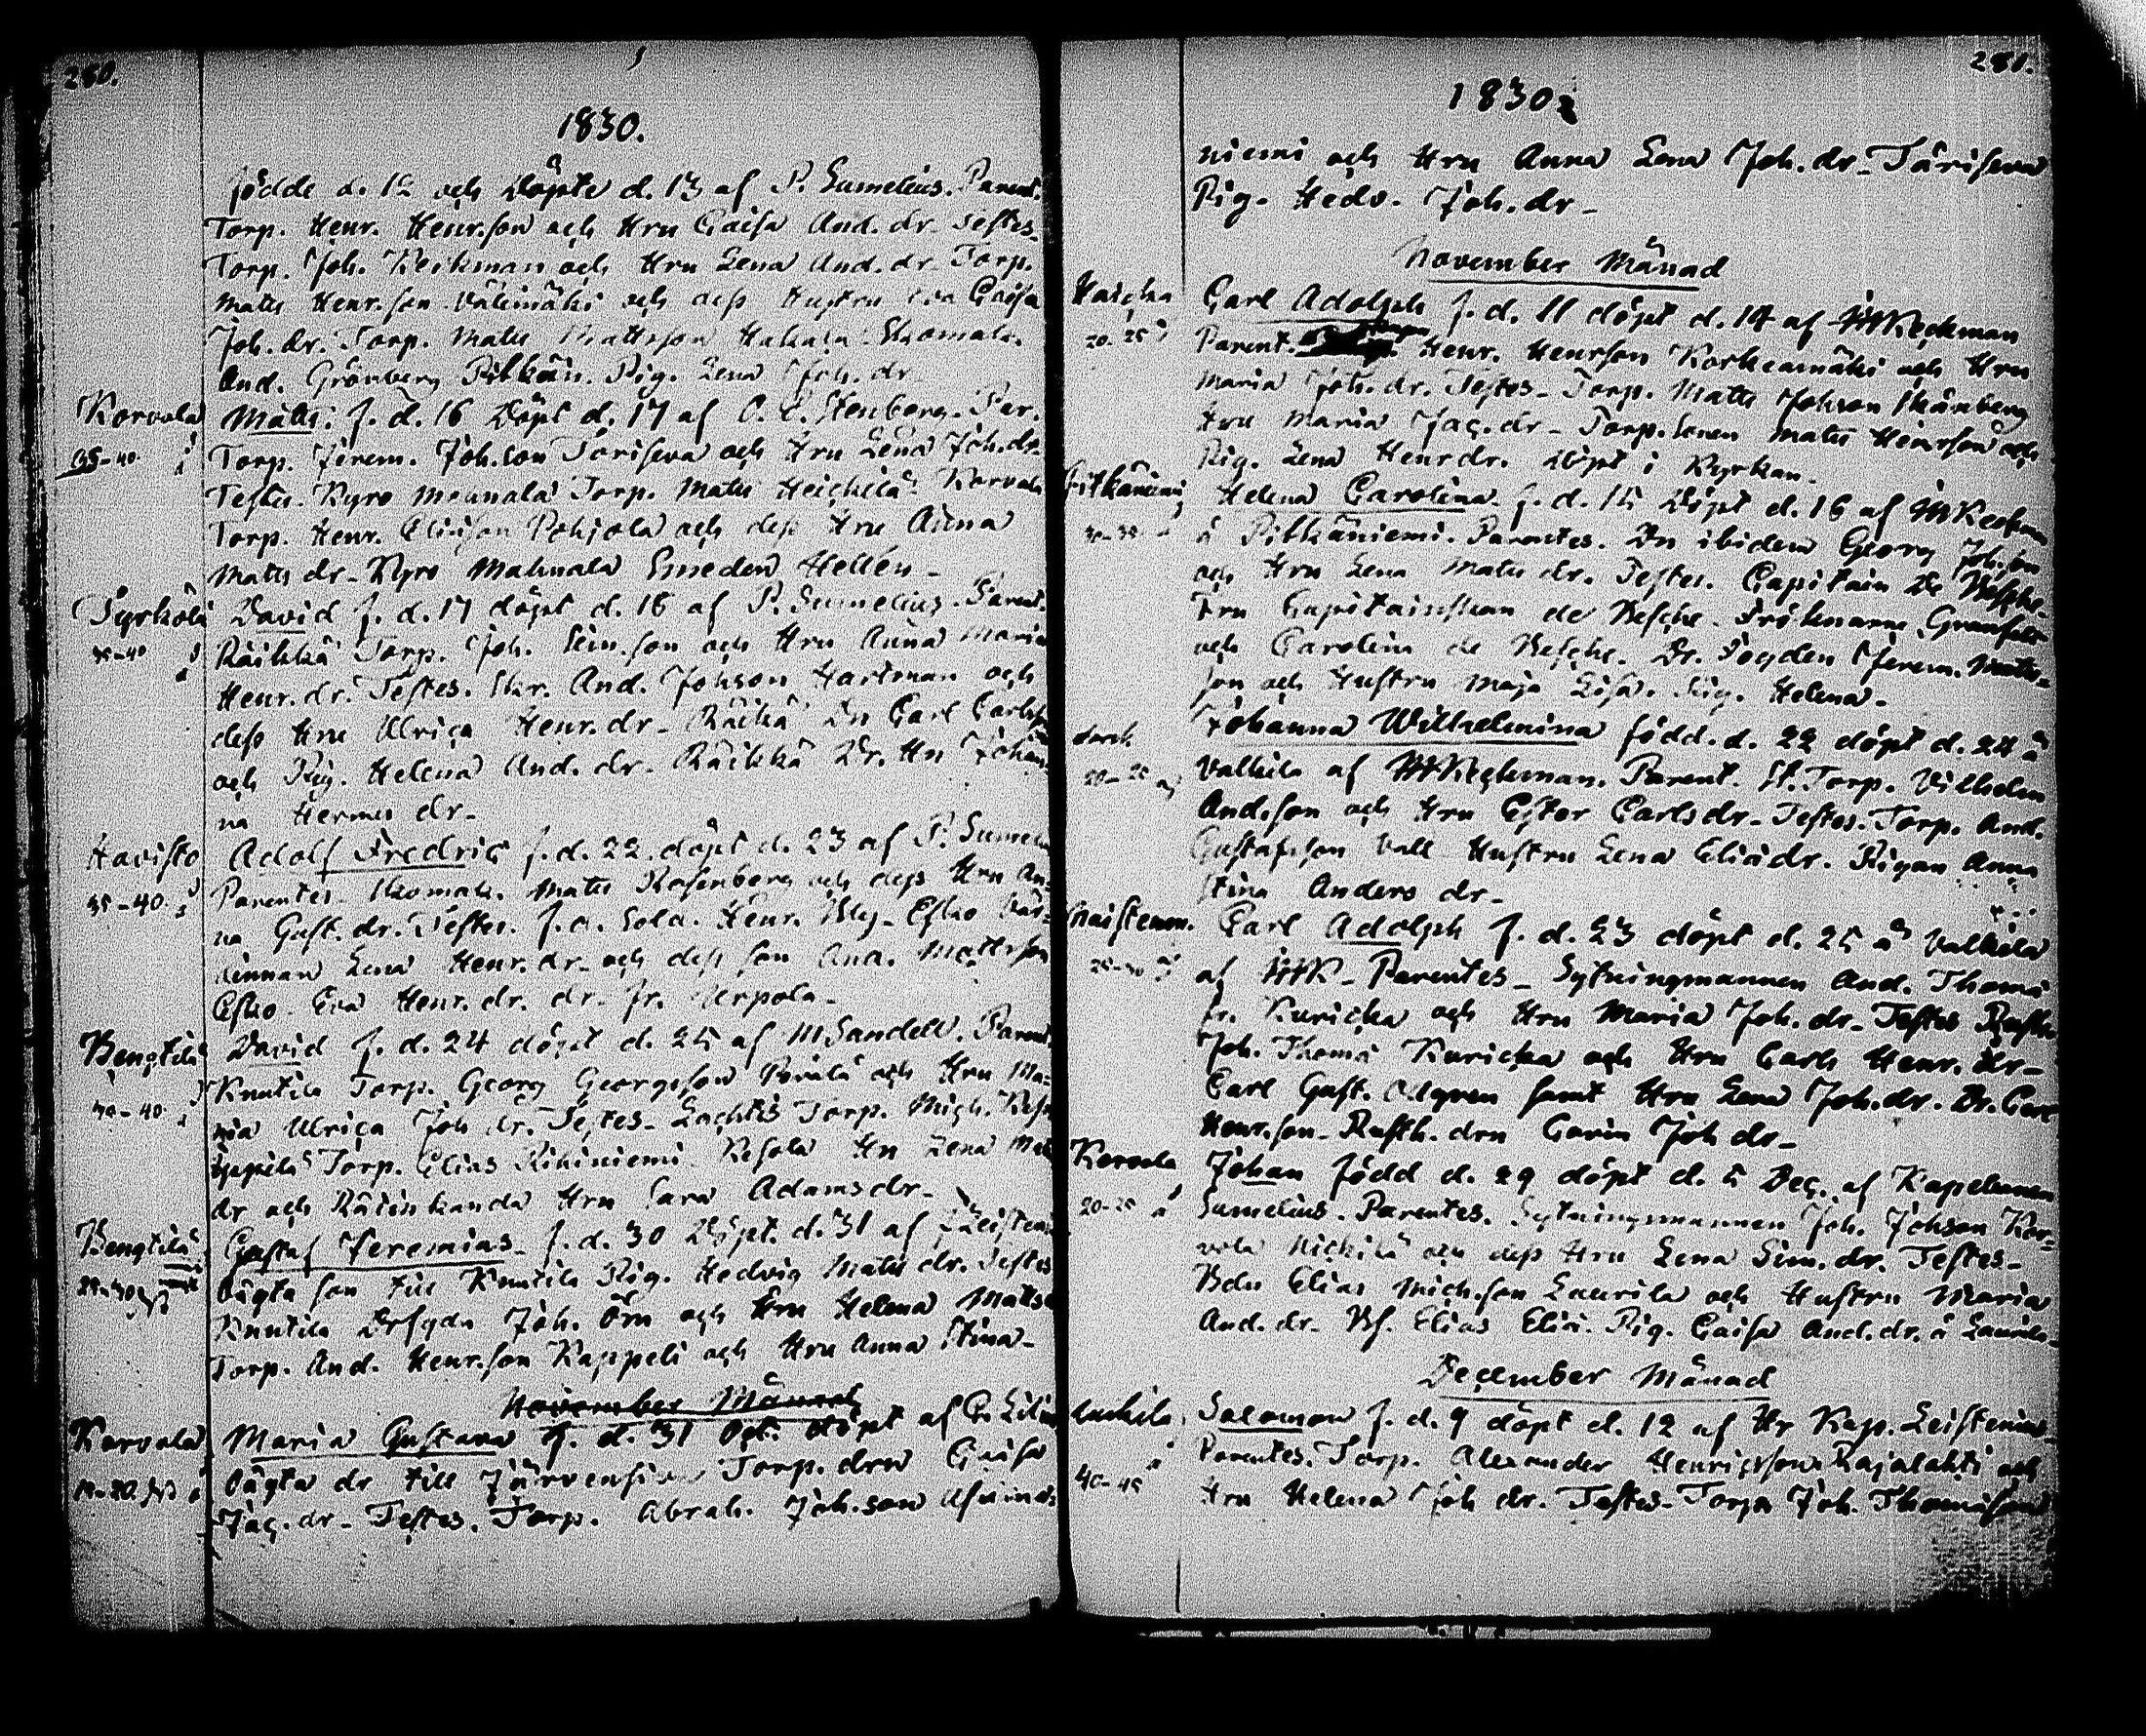 280.
1830.
födde d. 12 och döpte d. 13 af P. Sumelius. Parent.
Torp. Henr. Henr.son och Hru Caisa And. dr. Testes.
Torp. Joh. Keikman och Hru Lena And. dr. Torp.
Matts Henr.son Välimäki och dess Hustru Eva Caisa
Joh. dr. Torp. Matts Mattsson Hakala Skomak.
And. Grönberg Pitkän. Pig. Lena Joh. dr
Korvola
35-40
Matts: f. d. 16 döpt d. 17 af O. E. Stenberg. Par.
Torp. Jerem. Joh.son Toriseva och Hru Lena Joh.dr.
Testes. Kyro Mahnala Torp. Matts Heickilä Korvola
Torp. Henr. Eliæson Pohjola och dess Hru Anna
Matts dr. Kyro Mahnala Smeden Hellén
Tyrkölä
35-40
David f. d. 17 döpt d. 18 af P. Sumelius. Parent.
Räikkä Torp. Joh. Sim.son och Hru Anna Maria
Henr. dr. Testes. Skr. And. Johson Hartman och
dess Hru Ulrica Henr. dr. Räikä Dn Carl Carlss
och Pig. Helena And. dr. Räikkä Dr. Hn Johan-
na Herman dr.
Havisto
35-40
Adolf Fredric f. d. 22. döpt d. 23 af P. Sumel
Parentes. Skomak. Matts Rosenberg och dess Hru An-
na Gust. dr. Testes. f. d. Sold. Henr. Esko Vär-
dinnan Lena Henr. dr. och dess son And. Mattsson
Esko. Eva Henr. dr. dr. fr. Uerpola
Bengtilä
David f. d. 24 döpt d. 25 af M Sandell. Parent.
Knutila Torp. Georg Georgsson och Hru Ma-
ria Ulrica Joh dr. Testes. Lachtis Torp. Mich.
Torp. Elias Rihiniemi Hn Lena Mat
dr och Hru Sara Adamsdr.
Bengtilä
Gustaf Jeremias f. d. 30 Döpt. d. 31 af
Oägta son till Knutila Pig. Hedvig Matts dr. Testes
Knutila Joh. Örn och Hru Helena Matts
Torp. And. Henr.son Kappeli och Hru Anna Stina
November Månad
Korvola
Maria Gustava f. d. 31 Oct. döpt af
Oägta dr till Järvensivu Torp. dren Caisa
Jac. dr. Testes. Torp. Abrah. Joh.son
281.
1830
niemi och Hru Anna Lena Joh. dr. Täriseva
Pig. Hedv. Joh. dr.
November Månad
20-25
Carl Adolph f. d. 11 döpt d. 14 af MKeckman
Parent. Henr. Henrson Korkeamäki och Hru
Maria Joh. dr. Testes. Torp. Matts Johson Skänberg
Hru Maria Jac. dr. Torp. sonen Matts Henrson och
Pig. Lena Henrdr. döpt i Kyrkan.
Pitkäniemi
Helena Carolina f. d. 15 Döpt d. 16 af MKeckman
å Pitkäniemi. Parentes. Dn ibidem Georg Joh.son
och Hru Lena Matts dr. Testes. Capitain De Besche
Fru Capitainskan de Besche. Fröknarne
och Carolina de Besche. Dr. Fogden Jerem. Matts-
son och Hustru Maja Lisa. Pig. Helena.
Johanna Wilhelmina född. d. 22 döpt d. 24 å
Valkila af MKeckman. Parent. St. Torp. Vilhelm
And.son och Hru Ester Carlsdr. Testes. Torp. And.
Gustafsson Vall Hustru Lena Eliædr. Pigan Anna
Stina Anders dr.
25-30
Carl Adolph f. d. 23 döpt d. 25 å Valkila
af MK. Parentes. Sytningmannen And. Thomæ
fr. Kuricka och Hru Maria Joh. dr. Testes Rusth
Joh. Thomæ Kuricka och Hru Carls Henr. dr.
Carl Gust. Algren samt Hru Lena Joh.dr. Dr. Carl
Henr.son. Rusth. drn Carin Joh dr.
Korvola
20-25
Johan född d. 29 döpt d. 5 Dec. af Kapelanen
Sumelius. Parentes. Sytningmannen Joh. Johson Kor-
vola Nickilä och dess Hru Lena Sim. dr. Testes.
Bdn Elias Mich.son Laurila och Hustru Maria
And. dr. Bs. Elias Eliæ. Pig. Caisa And.dr. å Laurila
December Månad
40-45
Salomon f. d. 9 döpt d. 12 af Hr Kap. Leistenius
Parentes. Torp. Alexander Henricsson Rajalahti och
Hru Helena Joh dr. Testes. Torp. Joh. Thomæson